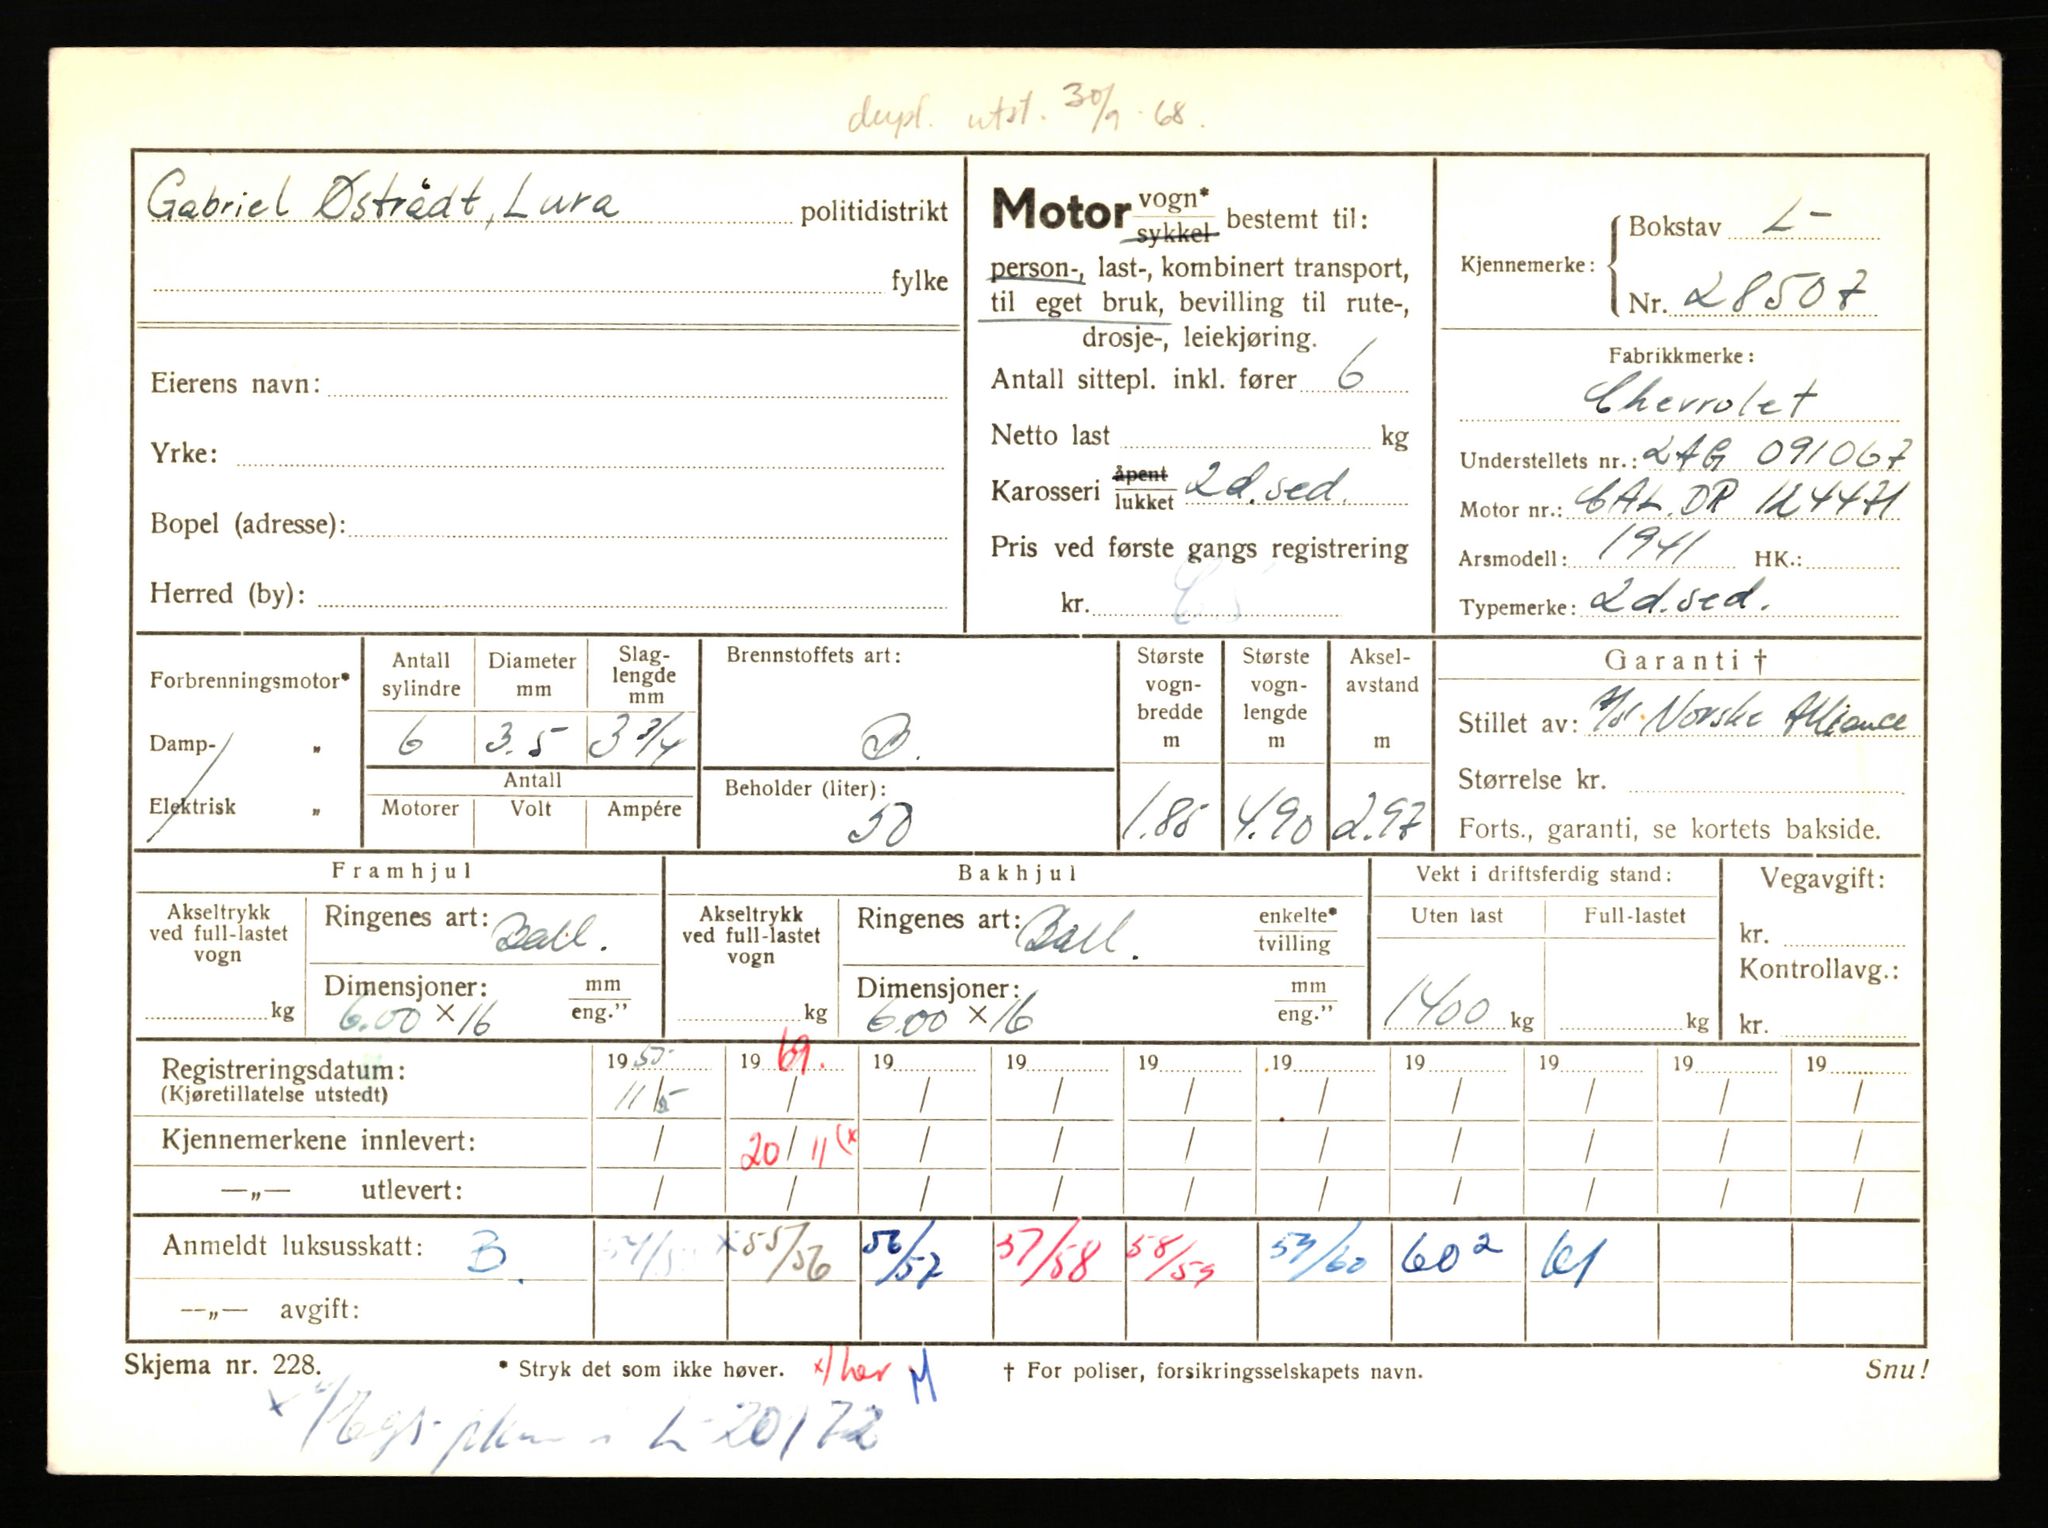 dupl. utst. 30/9-68.
Gabriel Østrådt, Lura politidistrikt
fylke
Eierens navn:
Yrke:
Bopel (adresse):
Herred (by):
Motor vogn* sykkel bestemt til:
person-, last-, kombinert transport,
til eget bruk, bevilling til rute-,
drosje-, leiekjøring.
Antall sittepl. inkl. fører 6
Netto last kg
Karosseri åpent lukket 2d.sed.
Pris ved første gangs registrering
kr.
Kjennemerke: Bokstav L-
Nr. 28507
Fabrikkmerke:
Chevrolet
Understellets nr.: 2AG 091067
Motor nr.: CAL.DR 124471
Arsmodell: 1941 HK.:
Typemerke: 2d.sed.
Forbrenningsmotor*
Damp- „
Elektrisk „
Antall sylindre
Diameter mm
Slag-lengde mm
6 3.5 3 3/4
Antall
Motorer Volt Ampére
Brennstoffets art:
B.
Beholder (liter):
50
Største vogn-bredde m
1.85
Største vogn-lengde m
4.90
Aksel-avstand m
2.97
Garanti †
Stillet av: A/S. Norske Alliance
Størrelse kr.
Forts., garanti, se kortets bakside.
Framhjul
Akseltrykk ved full-lastet vogn
kg
Ringenes art: Ball.
Dimensjoner: mm eng.”
6.00 x 16
Bakhjul
Akseltrykk ved full-lastet vogn
kg
Ringenes art: Ball. enkelte* tvilling
Dimensjoner: mm eng.”
6.00 x 16
Vekt i driftsferdig stand:
Uten last Full-lastet
1400 kg kg
Vegavgift:
kr.
Kontrollavg.:
kr.
Registreringsdatum: 19 55 19 69. 19 19 19 19 19 19 19 19
(Kjøretillatelse utstedt) 11/5 / / / / / / / / /
Kjennemerkene innlevert: / 20/11 (x / / / / / / / /
—„— utlevert: / / / / / / / / / /
Anmeldt luksusskatt: B. x55/56 56/57 57/58 58/59 59/60 60² 61
—„— avgift:
Skjema nr. 228. * Stryk det som ikke høver. x/ her M † For poliser, forsikringsselskapets navn. Snu!
L-20172